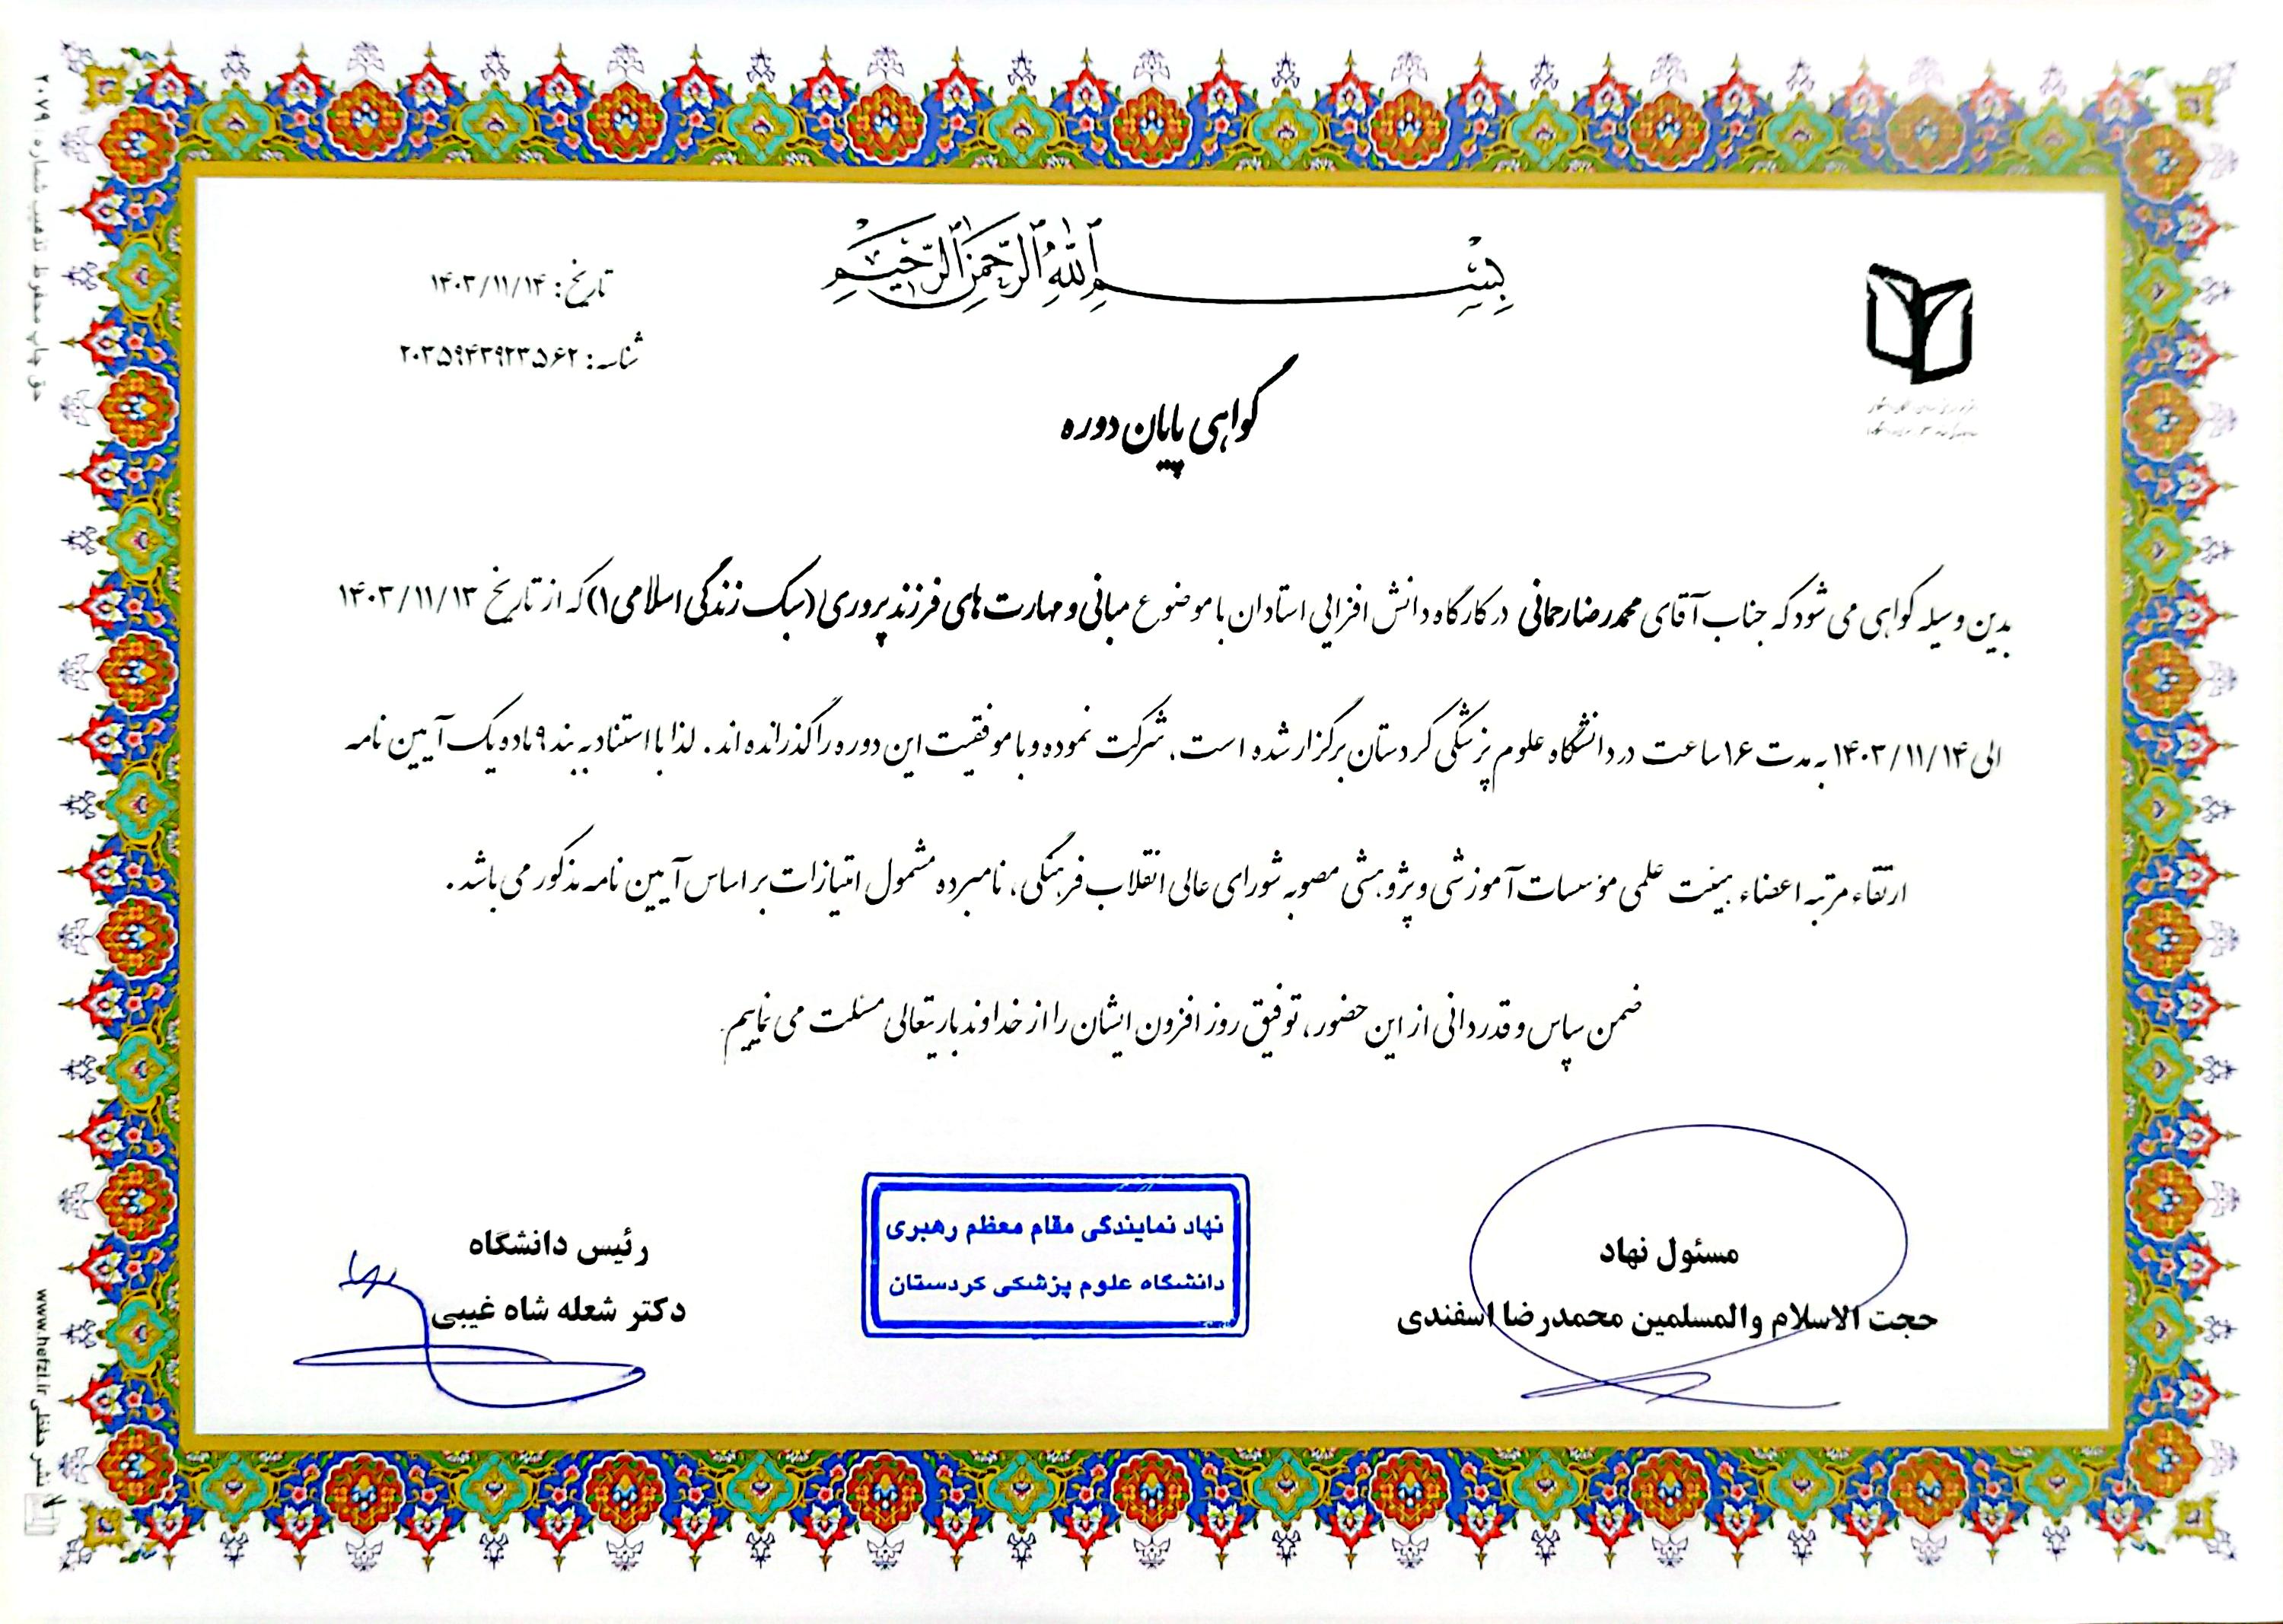 بِسْمِ ٱللَّهِ ٱلرَّحْمَنِ ٱلرَّحِيمِ
تاریخ: ۱۴۰۳/۱۱/۱۴
شناسه: ۲۰۳۵۹۴۳۹۲۳۵۶۲
گواهی پایان دوره
بدین وسیله گواهی می شود که جناب آقای محمدرضا رحمانی در کارگاه دانش افزایی استادان با موضوع مبانی و مهارت های فرزندپروری ۱ (سبک زندگی اسلامی ۱) که از تاریخ ۱۴۰۳/۱۱/۱۳
الی ۱۴۰۳/۱۱/۱۴ به مدت ۱۶ ساعت در دانشگاه علوم پزشکی کردستان برگزار شده است، شرکت نموده و با موفقیت این دوره را گذرانده اند. لذا با استناد به بند ۹ ماده یک آیین نامه
ارتقاء مرتبه اعضاء هیئت علمی مؤسسات آموزشی و پژوهشی مصوبه شورای عالی انقلاب فرهنگی، نامبرده مشمول امتیازات بر اساس آیین نامه مذکور می باشد.
ضمن سپاس و قدردانی از این حضور، توفیق روز افزون ایشان را از خداوند باریتعالی مسئلت می نماییم.
مسئول نهاد
حجت الاسلام والمسلمین محمدرضا اسفندی
نهاد نمایندگی مقام معظم رهبری
دانشگاه علوم پزشکی کردستان
رئیس دانشگاه
دکتر شعله شاه غیبی
حق چاپ محفوظ تذهیب شماره: ۲۰۷۹
نشر حفظی www.hefzi.ir